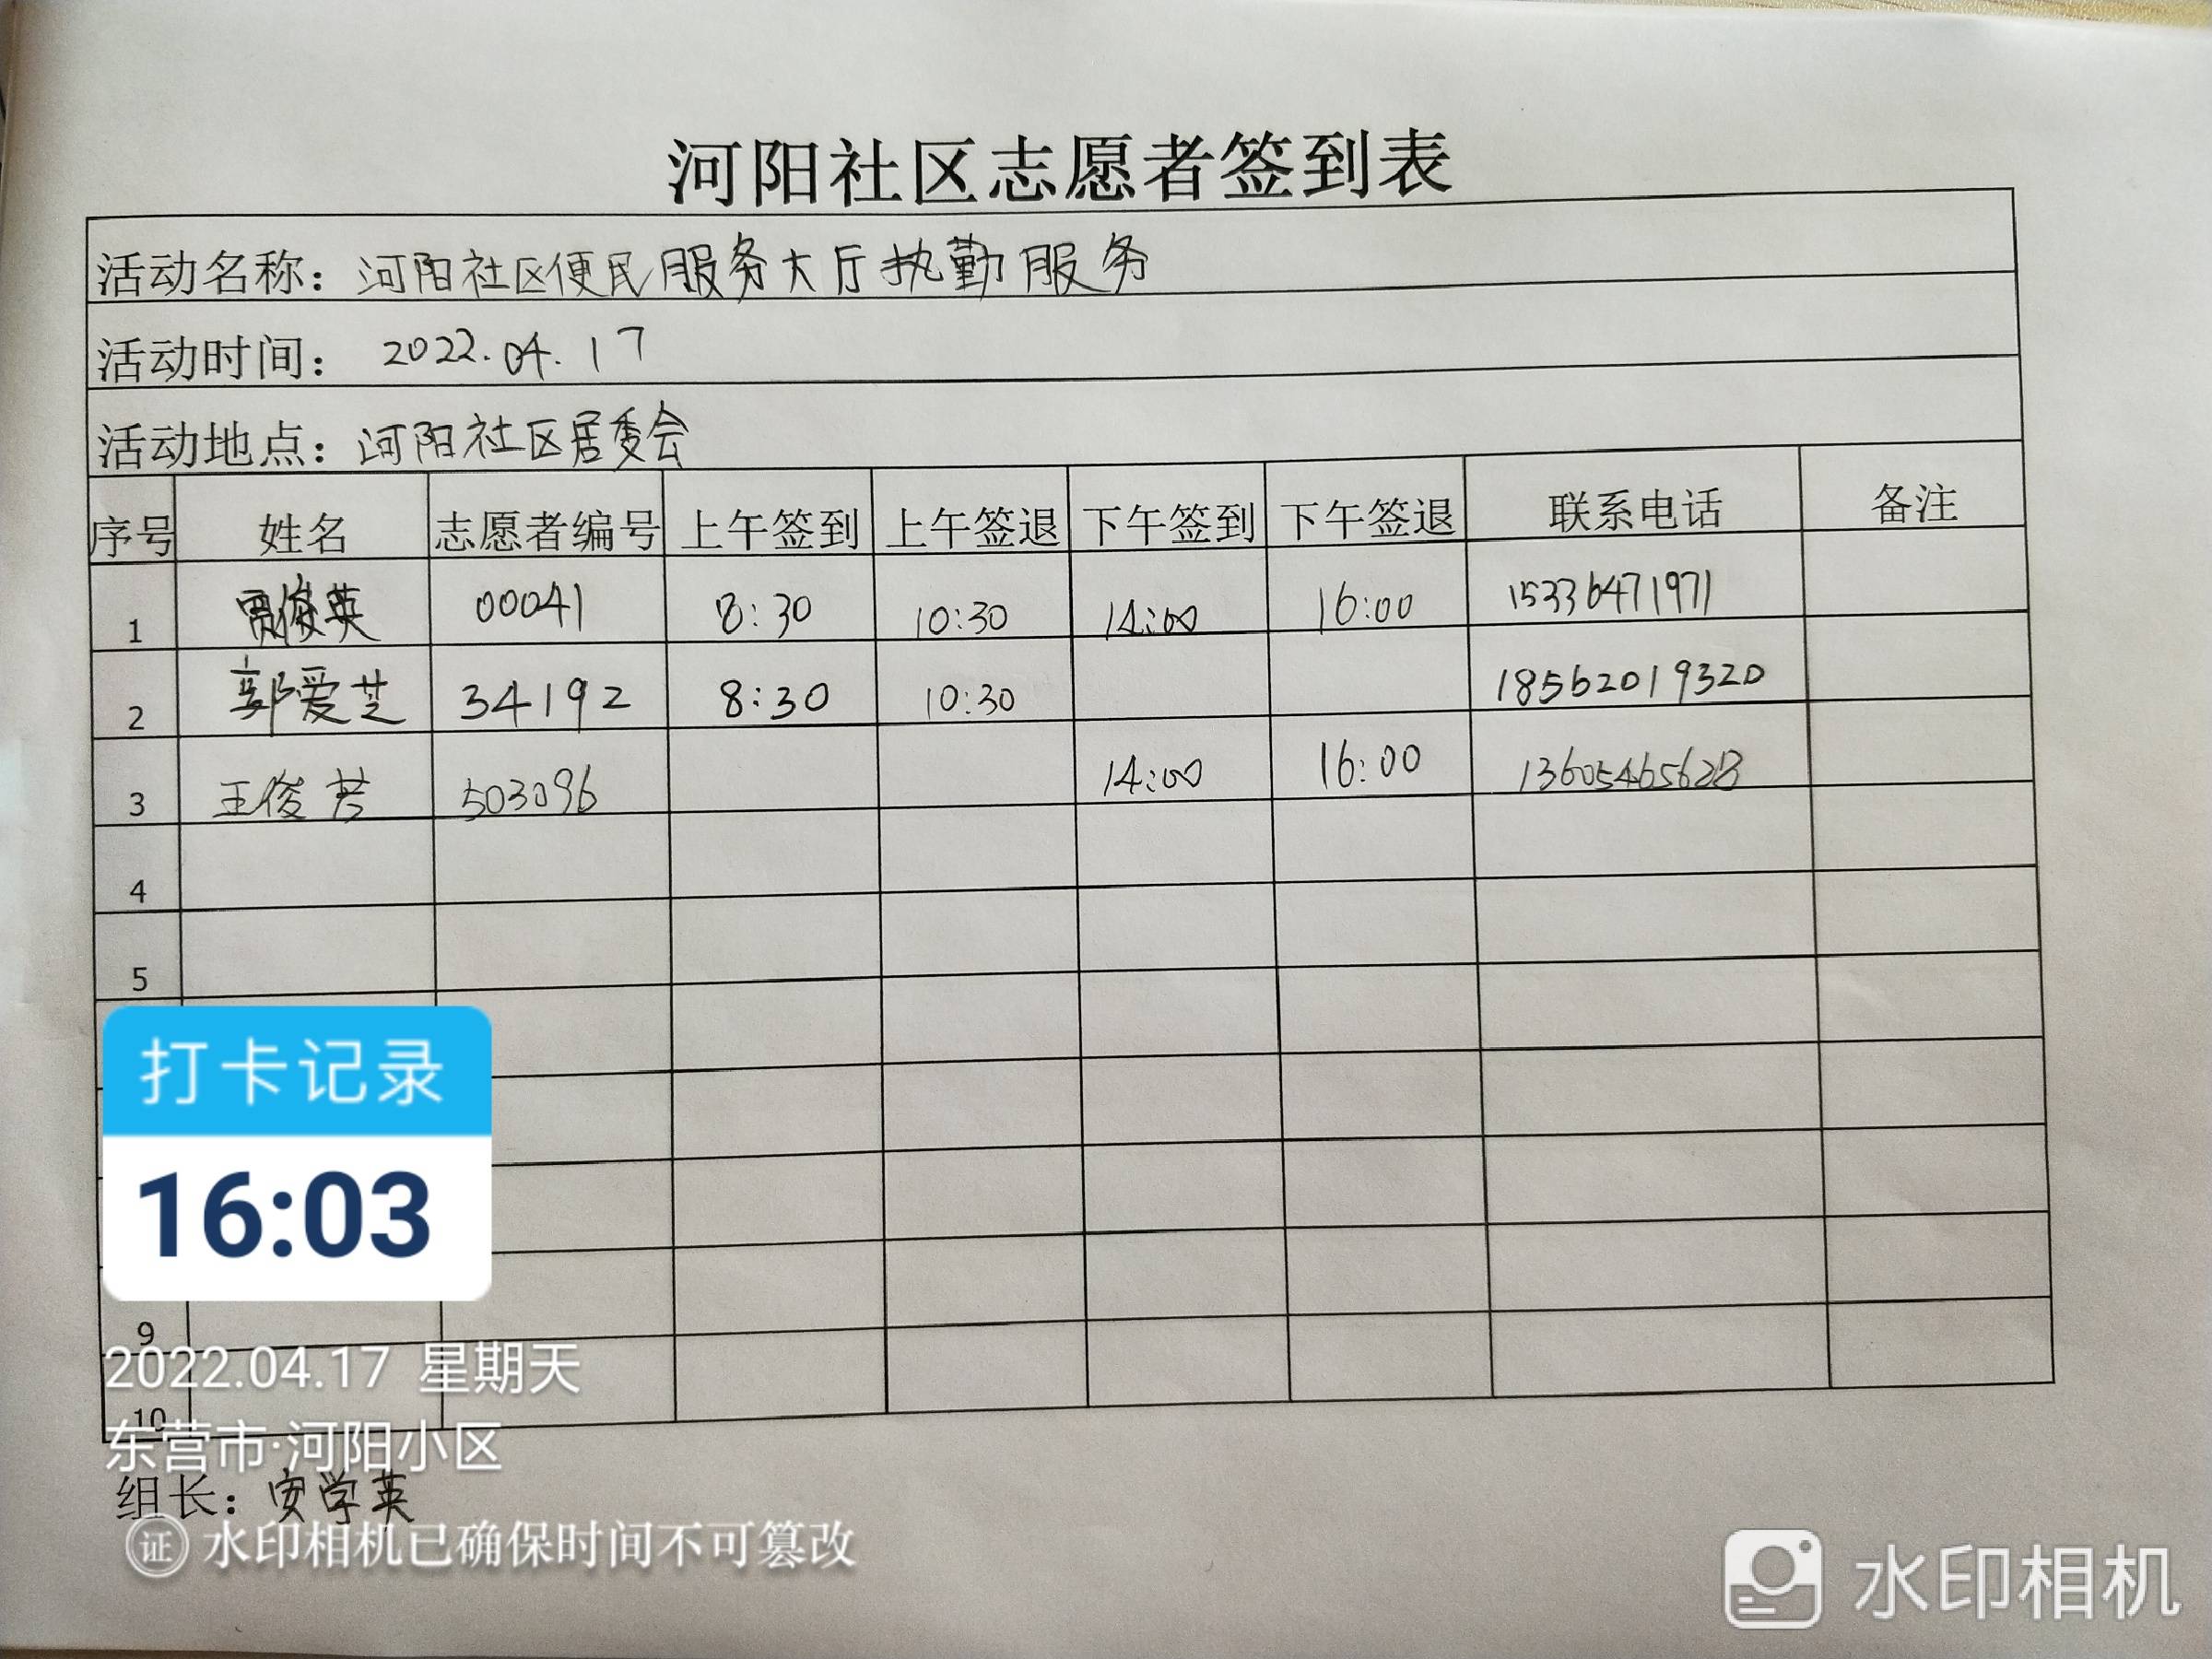 河阳社区志愿者签到表
活动名称：河阳社区便民服务大厅执勤服务
活动时间：2022.04.17
活动地点：河阳社区居委会
序号 姓名 志愿者编号 上午签到 上午签退 下午签到 下午签退 联系电话 备注
1 贾俊英 00041 8:30 10:30 14:00 16:00 15336471971
2 郭爱芝 34192 8:30 10:30 18562019320
3 王俊芳 503096 14:00 16:00 13605465628
4
5
打卡记录
16:03
9
2022.04.17 星期天
10
东营市·河阳小区
组长：安学英
证 水印相机已确保时间不可篡改
水印相机